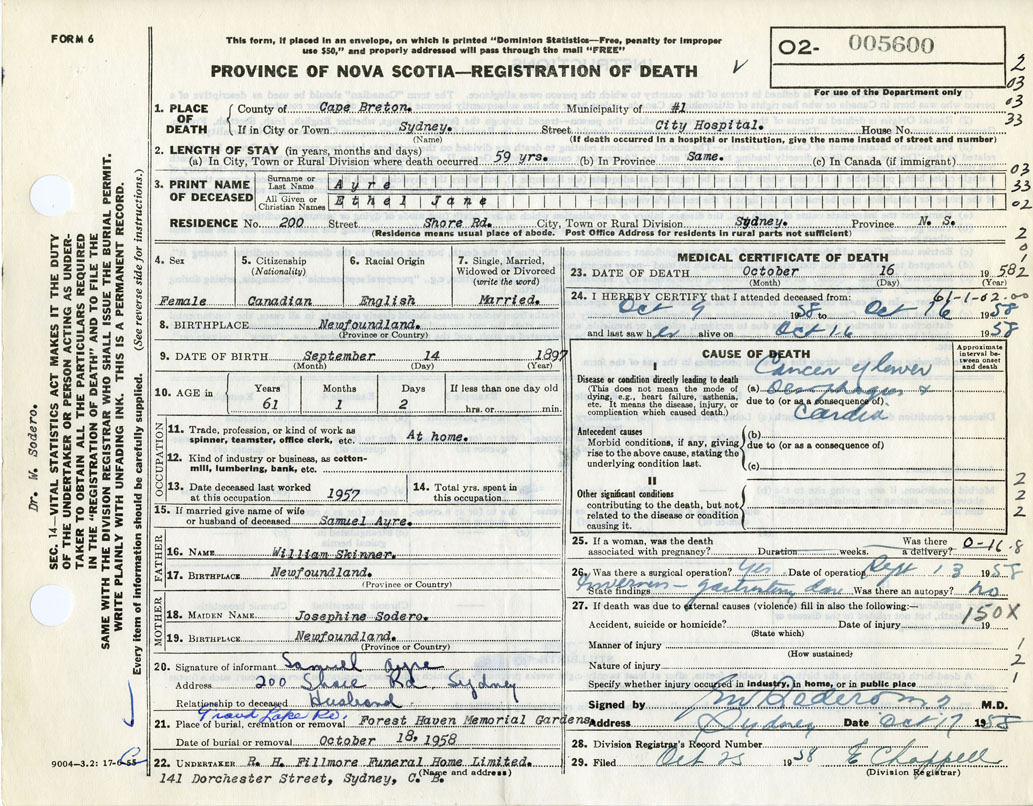 FORM 6
This form, if placed in an envelope, on which is printed "Dominion Statistics—Free, penalty for improper
use $50," and properly addressed will pass through the mail "FREE"
PROVINCE OF NOVA SCOTIA—REGISTRATION OF DEATH
02- 005600
For use of the Department only
2
03
33
1. PLACE OF DEATH
County of Cape Breton. Municipality of #1
If in City or Town Sydney. Street City Hospital. House No.
(Name) (If death occurred in a hospital or institution, give the name instead of street and number)
2. LENGTH OF STAY (in years, months and days)
(a) In City, Town or Rural Division where death occurred 59 yrs. (b) In Province Same. (c) In Canada (if immigrant)
03
33
02
3. PRINT NAME OF DECEASED
Surname or Last Name Ayre
All Given or Christian Names Ethel Jane
RESIDENCE No. 200 Street Shore Rd. City, Town or Rural Division Sydney. Province N. S.
(Residence means usual place of abode. Post Office Address for residents in rural parts not sufficient)
2
0
1
4. Sex
Female
5. Citizenship
(Nationality)
Canadian
6. Racial Origin
English
7. Single, Married, Widowed or Divorced
(write the word)
Married.
8. BIRTHPLACE Newfoundland.
(Province or Country)
9. DATE OF BIRTH September 14 1897
(Month) (Day) (Year)
10. AGE in
Years Months Days If less than one day old
61 1 2 hrs. or min.
OCCUPATION
11. Trade, profession or kind of work as spinner, teamster, office clerk, etc. At home.
12. Kind of industry or business, as cotton-mill, lumbering, bank, etc.
13. Date deceased last worked at this occupation 1957
14. Total yrs. spent in this occupation
15. If married give name of wife or husband of deceased Samuel Ayre.
FATHER
16. NAME William Skinner.
17. BIRTHPLACE Newfoundland.
(Province or Country)
MOTHER
18. MAIDEN NAME Josephine Sodero.
19. BIRTHPLACE Newfoundland.
(Province or Country)
20. Signature of informant Samuel Ayre
Address 200 Shore Rd Sydney
Relationship to deceased Husband
Grand Lake Rd.
21. Place of burial, cremation or removal Forest Haven Memorial Gardens
Date of burial or removal October 18, 1958
22. UNDERTAKER R. H. Fillmore Funeral Home Limited.
(Name and address)
141 Dorchester Street, Sydney, C. B.
MEDICAL CERTIFICATE OF DEATH
23. DATE OF DEATH October 16 1958 2
(Month) (Day) (Year)
24. I HEREBY CERTIFY that I attended deceased from: 61-1-02-00
Oct 9 1958 to Oct 16 1958
and last saw her alive on Oct 16 1958
CAUSE OF DEATH
Approximate interval between onset and death
I
Disease or condition directly leading to death
(This does not mean the mode of dying, e.g., heart failure, asthenia, etc. It means the disease, injury, or complication which caused death.)
Cancer of lower
(a) Oesophagus &
due to (or as a consequence of)
Cardia
Antecedent causes
Morbid conditions, if any, giving rise to the above cause, stating the underlying condition last.
(b)
due to (or as a consequence of)
(c)
II
Other significant conditions contributing to the death, but not related to the disease or condition causing it.
2
2
2
25. If a woman, was the death associated with pregnancy? Duration weeks. Was there a delivery? 0-16.8
26. Was there a surgical operation? Yes Date of operation Sept 13 1958
State findings Was there an autopsy? no
27. If death was due to external causes (violence) fill in also the following:—
150X
Accident, suicide or homicide? Date of injury 19
(State which)
Manner of injury
(How sustained)
Nature of injury
Specify whether injury occurred in industry, in home, or in public place
1
2
1
Signed by M.D.
Address Sydney Date Oct 17 1958
28. Division Registrar's Record Number
29. Filed Oct 25 1958 E Chappell
(Division Registrar)
SEC. 14—VITAL STATISTICS ACT MAKES IT THE DUTY
OF THE UNDERTAKER OR PERSON ACTING AS UNDER-
TAKER TO OBTAIN ALL THE PARTICULARS REQUIRED
IN THE "REGISTRATION OF DEATH" AND TO FILE THE
SAME WITH THE DIVISION REGISTRAR WHO SHALL ISSUE THE BURIAL PERMIT.
WRITE PLAINLY WITH UNFADING INK. THIS IS A PERMANENT RECORD.
Every item of information should be carefully supplied. (See reverse side for instructions.)
Dr. W. Sodero.
9004-3.2: 17-6-55